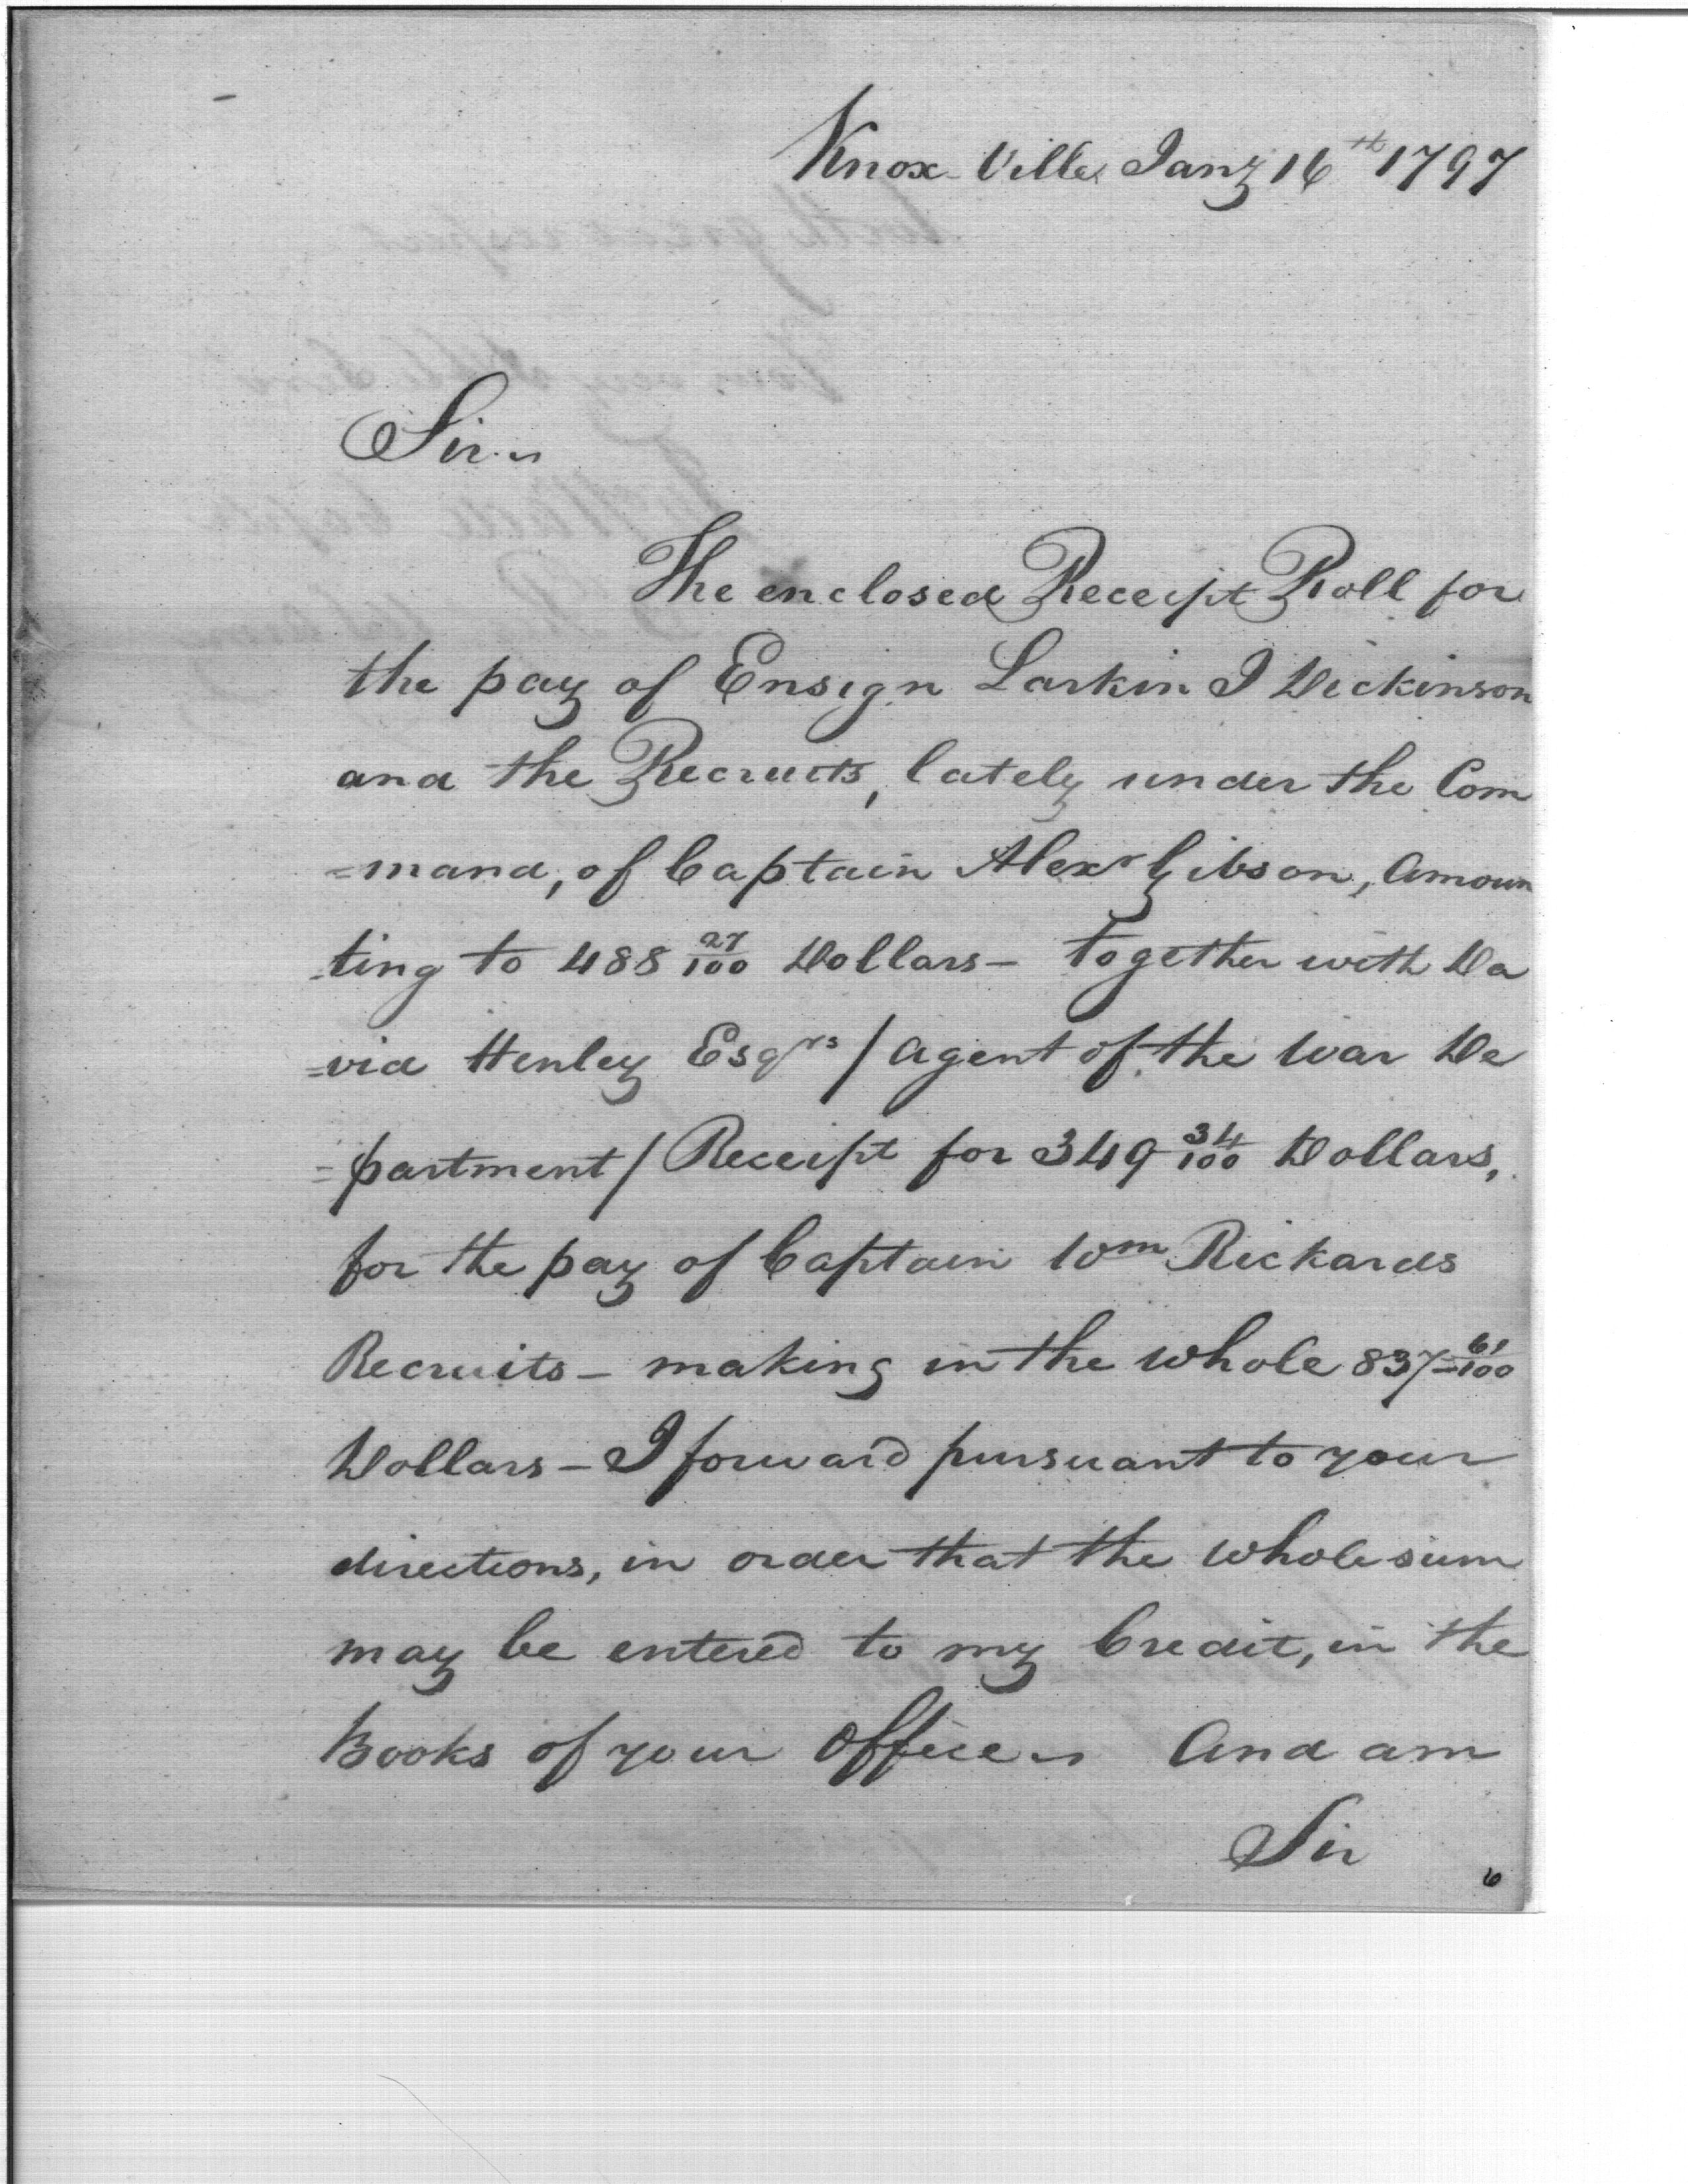 Knox-Ville Jany 16th 1797
Sir.
The enclosed Receipt Roll for
the pay of Ensign Larkin J Dickinson
and the Recruits, lately under the Com
=mand, of Captain Alexr Gibson, Amoun
=ting to 488 27/100 Dollars- together with Da
=vid Henley Esqrs / Agent of the War De
=partment / Receipt for 349 34/100 Dollars,
for the pay of Captain Wm Rickards
Recruits- making in the whole 837-61/100
Dollars- I forward pursuant to your
directions, in order that the whole sum
may be entered to my Credit, in the
Books of your Office And am
Sir
6